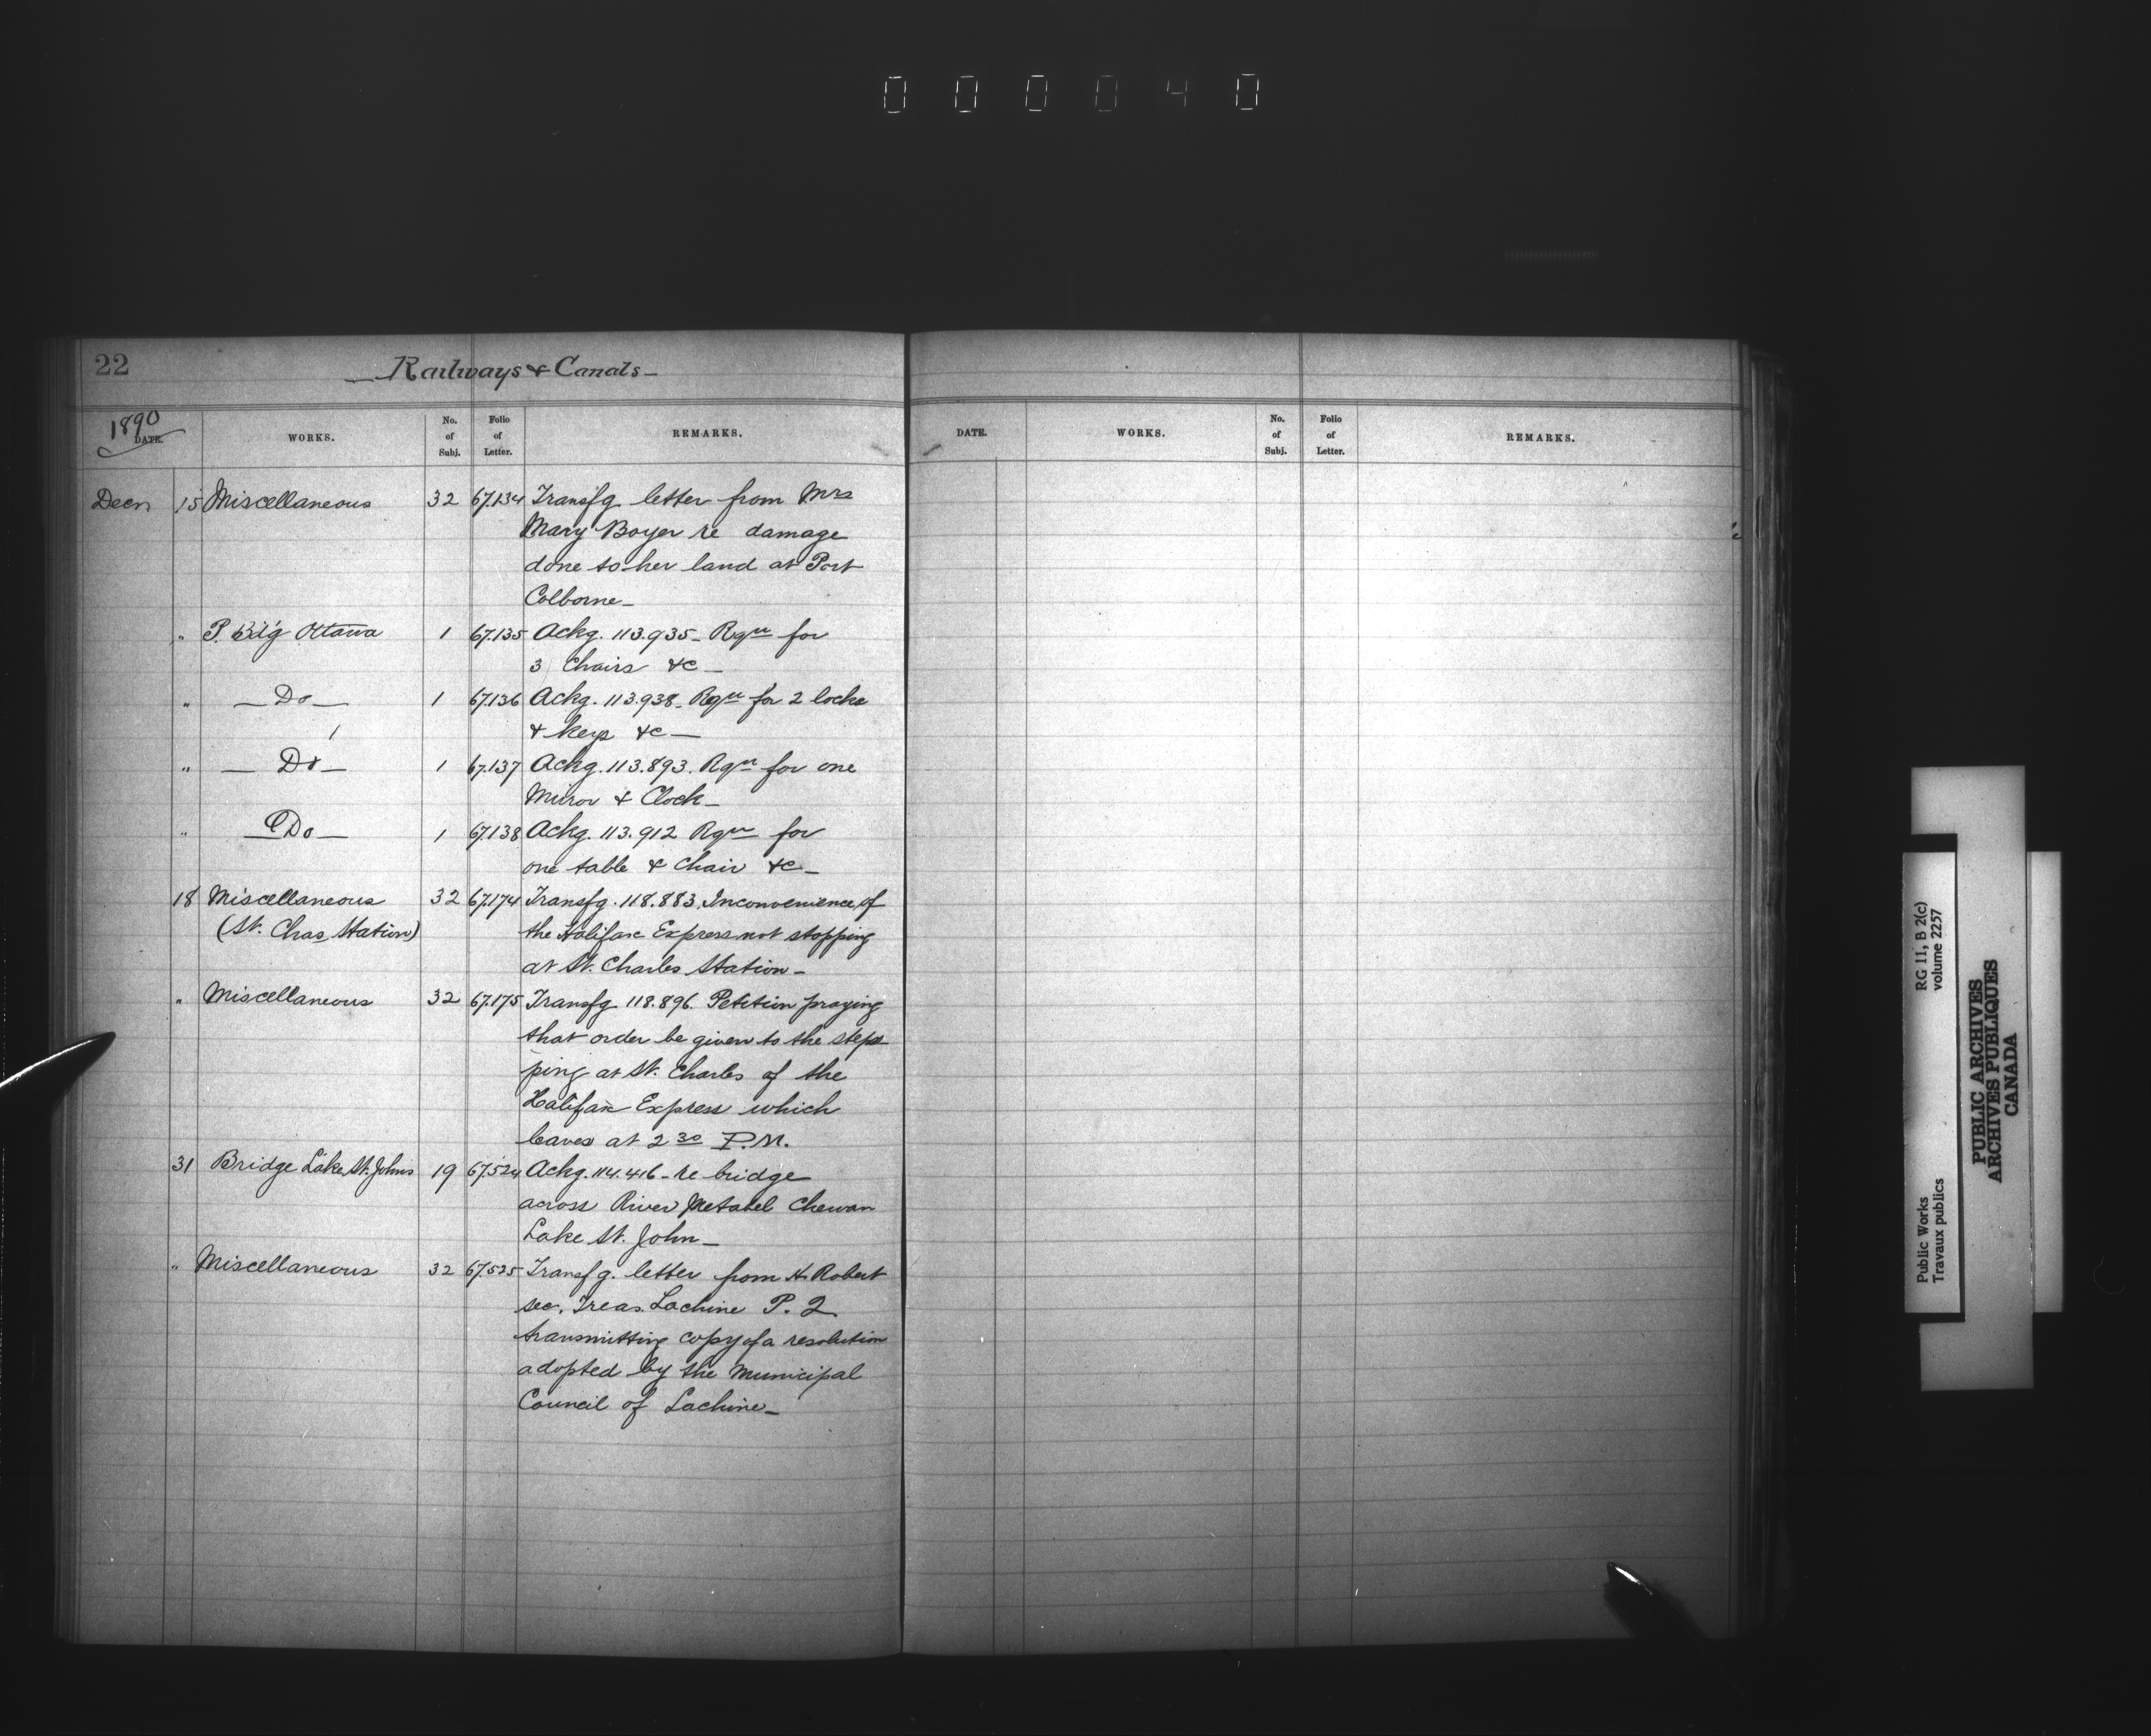 0 0 0 0 4 0
22
Railways & Canals
1890
DATE. WORKS. No. of Subj. Folio of Letter. REMARKS.
DATE. WORKS. No. of Subj. Folio of Letter. REMARKS.
Decr 15 Miscellaneous 32 67.134 Transfg letter from Mrs
Mary Boyer re damage
done to her land at Port
Colborne
" P. Bldg Ottawa 1 67.135 Ackg. 113.935 - Rqn for
3 Chairs &c
" Do 1 67.136 Ackg. 113.938 - Rqn for 2 locks
& keys &c
" Do 1 67.137 Ackg. 113.893. Rqn for one
Miror & Clock
" Do 1 67.138 Ackg. 113.912 Rqn for
one table & Chair &c
18 Miscellaneous 32 67.174 Transfg. 118.883. Inconvenience of
(St. Chas Station) the Halifax Express not stopping
at St. Charles Station
" Miscellaneous 32 67.175 Transfg 118.896. Petition praying
that order be given to the stop
ping at St. Charles of the
Halifax Express which
leaves at 2 30 P.M.
31 Bridge Lake St. Johns 19 67.524 Ackg. 114.416 - re bridge
across River Metabel Chewan
Lake St. John
" Miscellaneous 32 67.525 Transfg. letter from H. Robert
sec. Treas. Lachine P. Q
transmitting copy of a resolution
adopted by the Municipal
Council of Lachine
RG 11, B 2(c)
volume 2257
Public Works
Travaux publics
PUBLIC ARCHIVES
ARCHIVES PUBLIQUES
CANADA